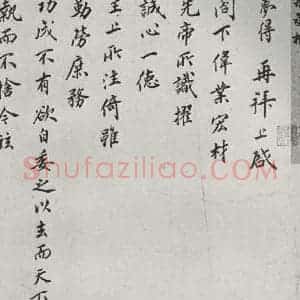 夢得 再拜上啟
閤下偉業宏材
先帝所識擢
誠心一德
主上所注倚雖
勤勞庶務
功成不有欲自委之以去而天下
執而不捨令茲
Shufaziliao.com